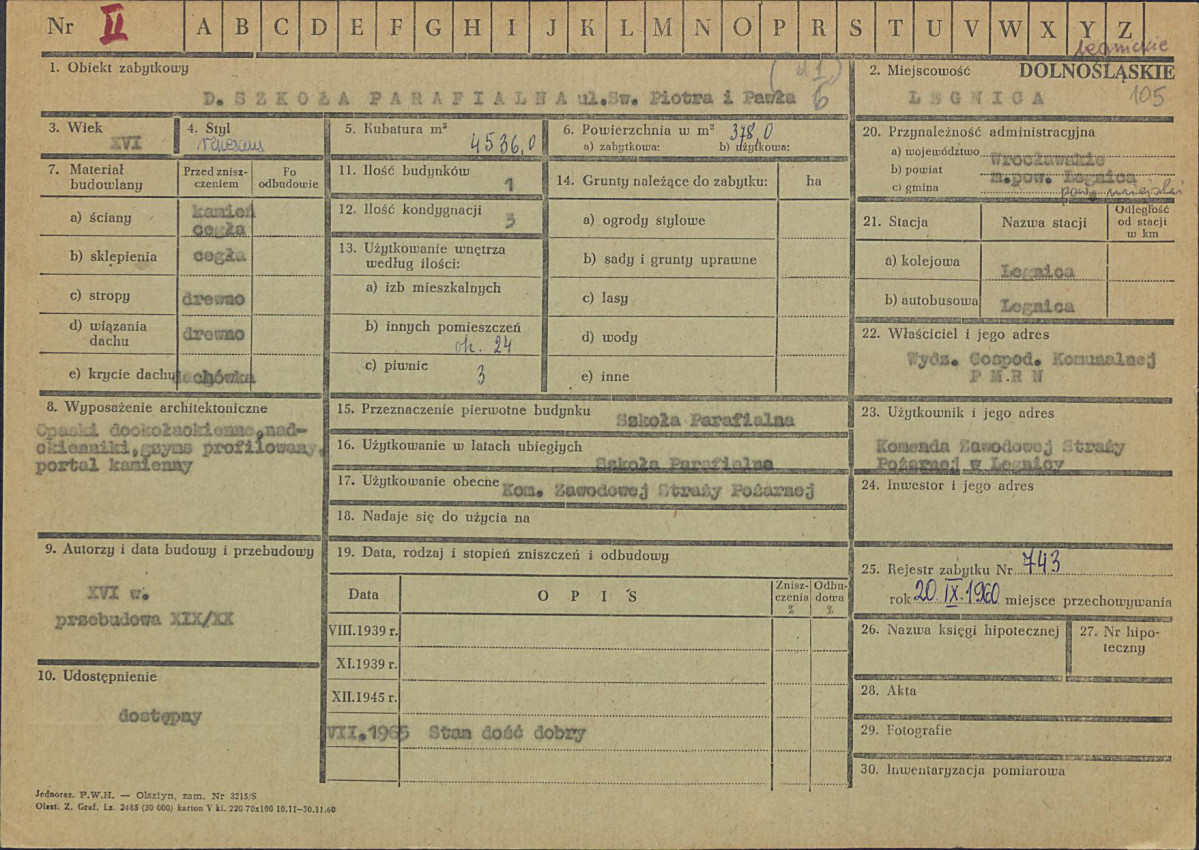 Nr II A B C D E F G H I J K L M N O P R S T U V W X Y Z
legnickie
1. Obiekt zabytkowy
D. SZKOŁA PARAFIALNA ul.Św. Piotra i Pawła 6
2. Miejscowość DOLNOŚLĄSKIE
LEGNICA 105
3. Wiek
XVI
4. Styl
renesans
5. Kubatura m³
4536,0
6. Powierzchnia w m² 378,0
a) zabytkowa: b) użytkowa:
7. Materiał budowlany
Przed zniszczeniem
Po odbudowie
a) ściany
kamień
cegła
b) sklepienia cegła
c) stropy drewno
d) wiązania dachu drewno
e) krycie dachu dachówka
8. Wyposażenie architektoniczne
Opaski dookołaokienne,nad-
okienniki,gzyms profilowany,
portal kamienny
9. Autorzy i data budowy i przebudowy
XVI w.
przebudowa XIX/XX
10. Udostępnienie
dostępny
11. Ilość budynków
1
12. Ilość kondygnacji
3
13. Użytkowanie wnętrza
według ilości:
a) izb mieszkalnych
b) innych pomieszczeń
ok. 24
c) piwnic
3
14. Grunty należące do zabytku: ha
a) ogrody stylowe
b) sady i grunty uprawne
c) lasy
d) wody
e) inne
15. Przeznaczenie pierwotne budynku
Szkoła Parafialna
16. Użytkowanie w latach ubiegłych
Szkoła Parafialna
17. Użytkowanie obecne Kom. Zawodowej Straży Pożarnej
18. Nadaje się do użycia na
19. Data, rodzaj i stopień zniszczeń i odbudowy
Data
O P I S
Znisz-
czenia
%
Odbu-
dowa
%
VIII.1939 r.
XI.1939 r.
XII.1945 r.
VII.1965 Stan dość dobry
20. Przynależność administracyjna
a) województwo Wrocławskie
b) powiat m.pow. Legnica
c) gmina
21. Stacja
Nazwa stacji
Odległość
od stacji
w km
a) kolejowa Legnica
b) autobusowa Legnica
22. Właściciel i jego adres
Wydz. Gospod. Komunalnej
P M.R N
23. Użytkownik i jego adres
Komenda Zawodowej Straży
Pożarnej w Legnicy
24. Inwestor i jego adres
25. Rejestr zabytku Nr 743
rok 20.IX.1960 miejsce przechowywania
26. Nazwa księgi hipotecznej
27. Nr hipo-
teczny
28. Akta
29. Fotografie
30. Inwentaryzacja pomiarowa
Jednoraz. P.W.H. — Olsztyn, zam. Nr 3215/S
Olszt. Z. Graf. Lz. 2485 (30 000) karton V kl. 220 70x100 10.11—30.11.60